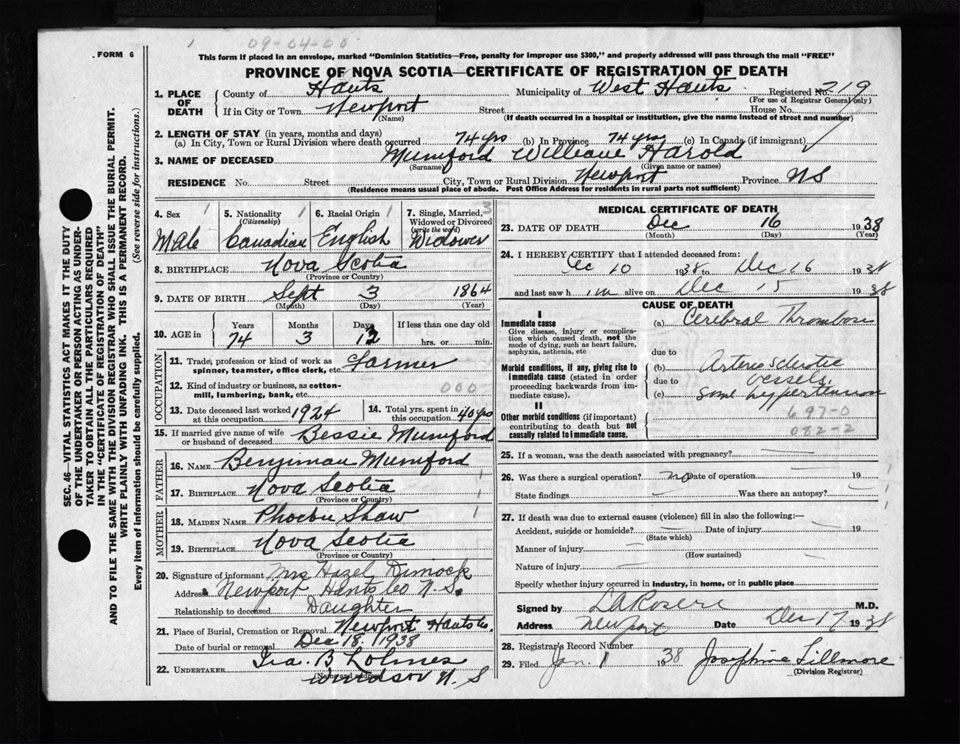 09-04-00
FORM 6
This form if placed in an envelope, marked "Dominion Statistics—Free, penalty for improper use $300," and properly addressed will pass through the mail "FREE"
PROVINCE OF NOVA SCOTIA—CERTIFICATE OF REGISTRATION OF DEATH
1. PLACE OF DEATH County of Hants Municipality of West Hants Registered No. 219
(For use of Registrar General only)
If in City or Town Newport Street House No.
(Name) (If death occurred in a hospital or institution, give the name instead of street and number)
2. LENGTH OF STAY (in years, months and days)
(a) In City, Town or Rural Division where death occurred 74 yrs (b) In Province 74 yrs (c) In Canada (if immigrant)
3. NAME OF DECEASED Mumford William Harold
(Surname) (Given name or names)
RESIDENCE No. Street City, Town or Rural Division Newport Province NS
(Residence means usual place of abode. Post Office Address for residents in rural parts not sufficient)
SEC. 46—VITAL STATISTICS ACT MAKES IT THE DUTY
OF THE UNDERTAKER OR PERSON ACTING AS UNDER-
TAKER TO OBTAIN ALL THE PARTICULARS REQUIRED
IN THE "CERTIFICATE OF REGISTRATION OF DEATH"
AND TO FILE THE SAME WITH THE DIVISION REGISTRAR WHO SHALL ISSUE THE BURIAL PERMIT.
WRITE PLAINLY WITH UNFADING INK. THIS IS A PERMANENT RECORD.
Every item of information should be carefully supplied. (See reverse side for instructions.)
4. Sex Male
5. Nationality (Citizenship) Canadian
6. Racial Origin English
7. Single, Married, Widowed or Divorced (write the word) Widower
8. BIRTHPLACE Nova Scotia
(Province or Country)
9. DATE OF BIRTH Sept 3 1864
(Month) (Day) (Year)
10. AGE in Years 74 Months 3 Days 12 If less than one day old hrs. or min.
OCCUPATION
11. Trade, profession or kind of work as spinner, teamster, office clerk, etc. Farmer
12. Kind of industry or business, as cotton-mill, lumbering, bank, etc. 000
13. Date deceased last worked at this occupation 1924
14. Total yrs. spent in this occupation 40 yrs
15. If married give name of wife or husband of deceased Bessie Mumford
FATHER
16. NAME Benjiman Mumford
17. BIRTHPLACE Nova Scotia
(Province or Country)
MOTHER
18. MAIDEN NAME Phoebe Shaw
19. BIRTHPLACE Nova Scotia
(Province or Country)
20. Signature of informant Mrs Hazel Dimock
Address Newport Hants Co N.S.
Relationship to deceased Daughter
21. Place of Burial, Cremation or Removal Newport Hants Co.
Date of burial or removal Dec 18, 1938
22. UNDERTAKER Ira. B Lohnes
(Name and address) Windsor N.S
MEDICAL CERTIFICATE OF DEATH
23. DATE OF DEATH Dec 16 1938
(Month) (Day) (Year)
24. I HEREBY CERTIFY that I attended deceased from:
Dec 10 1938 to Dec 16 1938
and last saw him alive on Dec 15 1938
CAUSE OF DEATH
I
Immediate cause
Give disease, injury or complication which caused death, not the mode of dying, such as heart failure, asphyxia, asthenia, etc
(a) Cerebral Thrombosis
due to
Morbid conditions, if any, giving rise to immediate cause (stated in order proceeding backwards from immediate cause).
(b) Arterio Sclerotic vessels
due to
(c) Some hypertension
II
Other morbid conditions (if important) contributing to death but not causally related to immediate cause.
697-0
082-2
25. If a woman, was the death associated with pregnancy?
26. Was there a surgical operation? no Date of operation 19
State findings Was there an autopsy?
27. If death was due to external causes (violence) fill in also the following:—
Accident, suicide or homicide? Date of injury 19
(State which)
Manner of injury
(How sustained)
Nature of injury
Specify whether injury occurred in industry, in home, or in public place
Signed by M.D.
Address Newport Date Dec 17 1938
28. Registrar's Record Number
29. Filed Jan 1 1938 Josephine Fillmore
(Division Registrar)